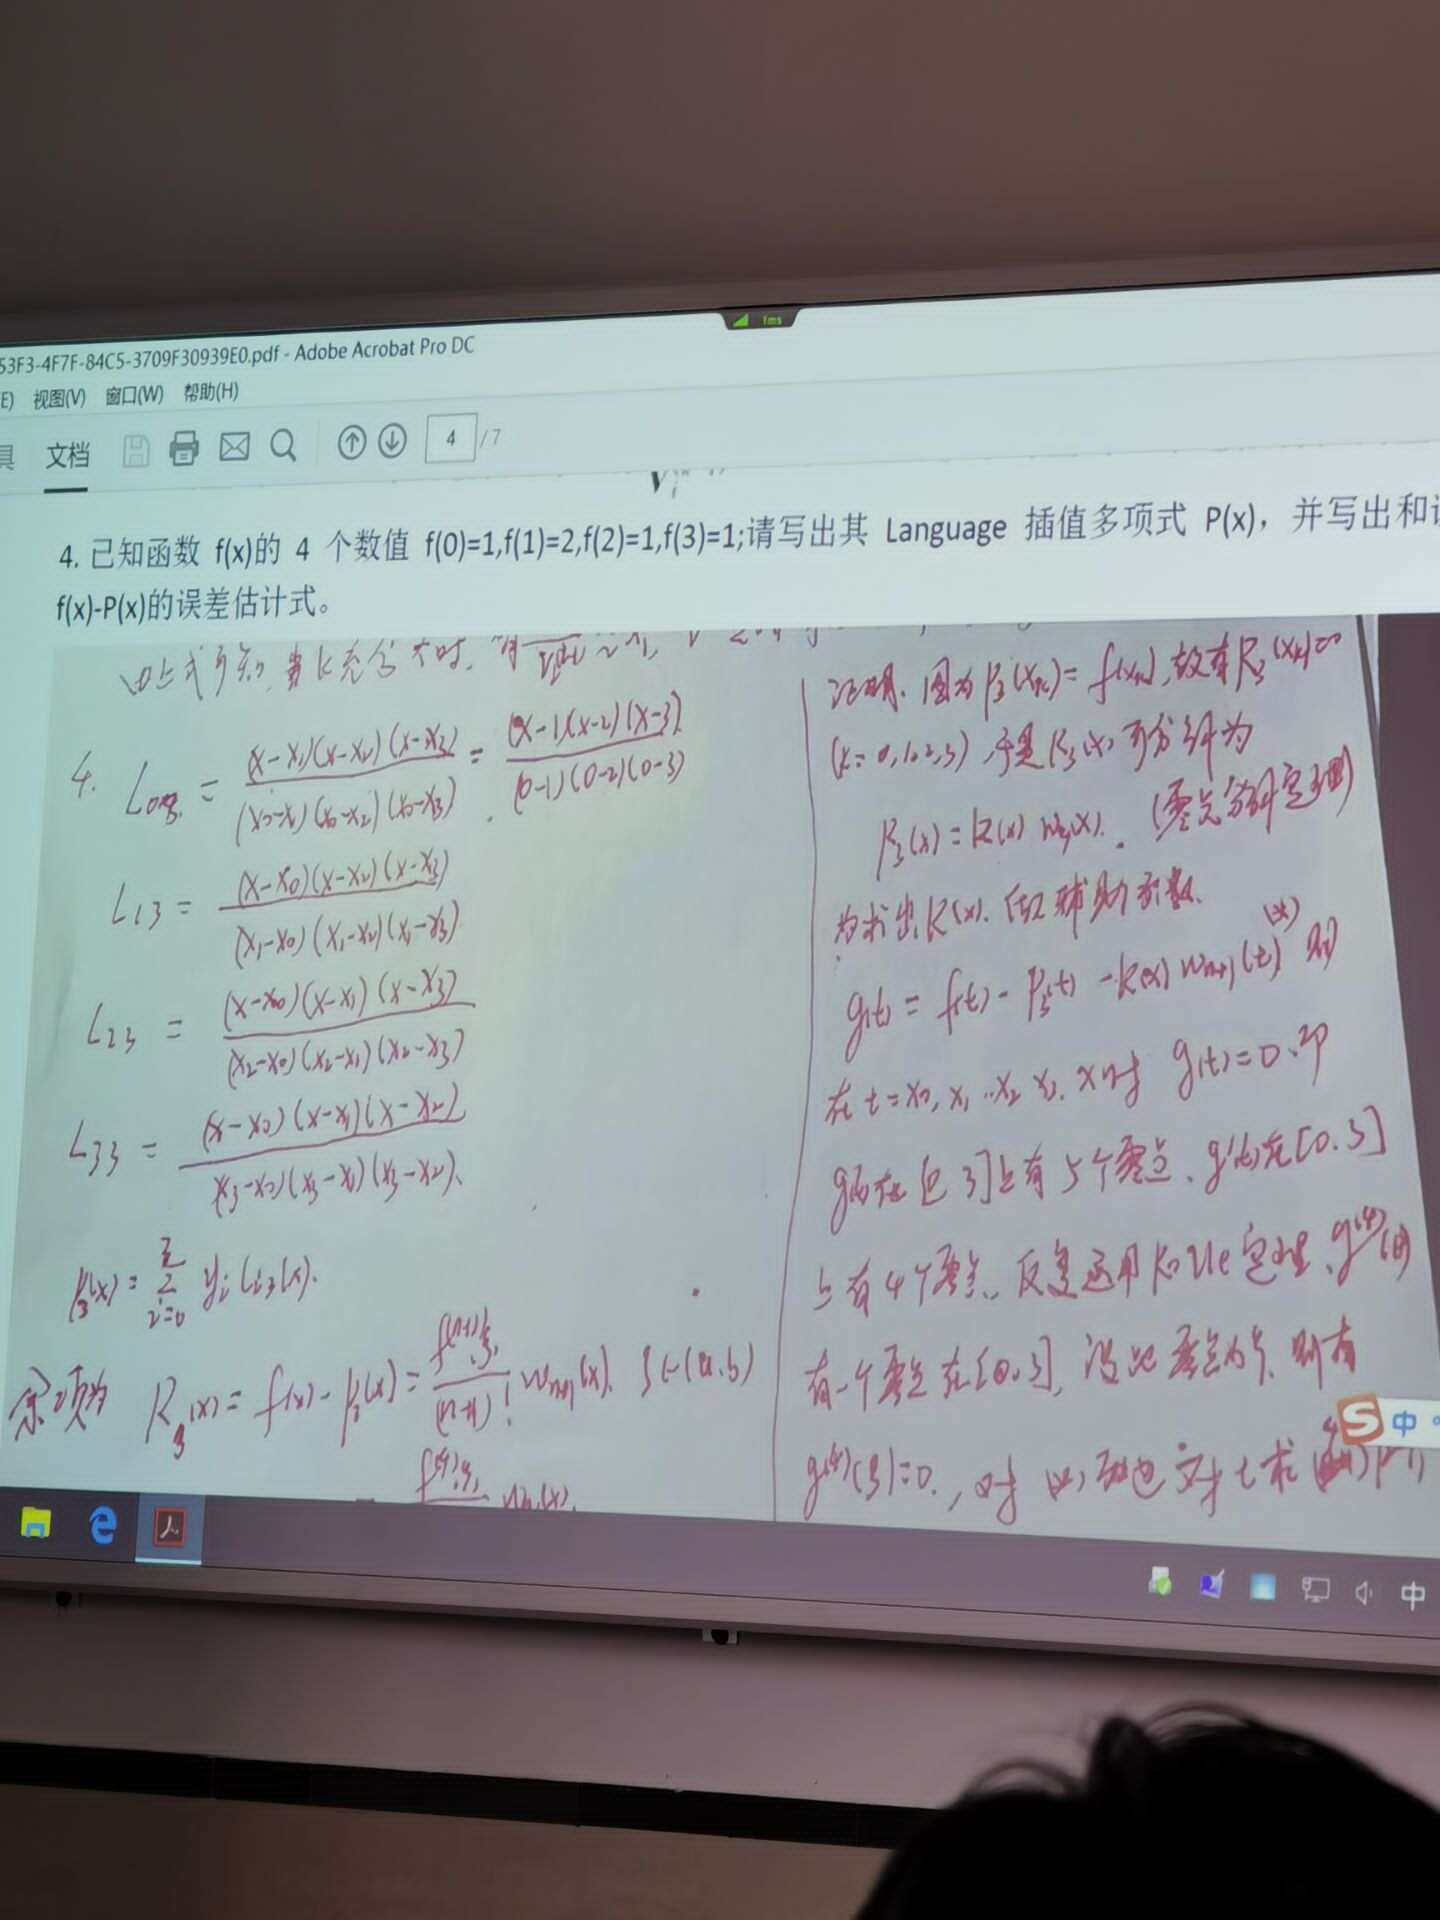 53F3-4F7F-84C5-3709F30939E0.pdf - Adobe Acrobat Pro DC
E) 视图(V) 窗口(W) 帮助(H)
具 文档 4 / 7
1ms
4. 已知函数 f(x)的 4 个数值 f(0)=1,f(1)=2,f(2)=1,f(3)=1;请写出其 Language 插值多项式 P(x)，并写出和
f(x)-P(x)的误差估计式。
由上式可知,当k充分大时,有
4. L₀₃ = (x-x₁)(x-x₂)(x-x₃) / (x₀-x₁)(x₀-x₂)(x₀-x₃) = (x-1)(x-2)(x-3) / (0-1)(0-2)(0-3)
L₁₃ = (x-x₀)(x-x₂)(x-x₃) / (x₁-x₀)(x₁-x₂)(x₁-x₃)
L₂₃ = (x-x₀)(x-x₁)(x-x₃) / (x₂-x₀)(x₂-x₁)(x₂-x₃)
L₃₃ = (x-x₀)(x-x₁)(x-x₂) / (x₃-x₀)(x₃-x₁)(x₃-x₂).
P₃(x) = Σ i=0 yᵢ Lᵢ₃(x).
余项为 R₃(x) = f(x) - P₃(x) = f⁽ⁿ⁺¹⁾(ξ) / (n+1)! wₙ₊₁(x). ξ∈(a.b)
证明. 因为 P₃(xₖ) = f(xₖ), 故有 R₃(xₖ)=0
(k=0,1,2,3), 于是 R₃(x) 可分解为
R₃(x) = k(x) w₃(x). (零点分解定理)
为求出 k(x). 做辅助函数.
g(t) = f(t) - P₃(t) - k(x) wₙ₊₁(t) (*) 则
在 t=x₀, x₁ .. x₂ x₃. x时 g(t)=0. 即
g(t)在[0 3]上有5个零点. g'(t)在[0.3]
上有4个零点. 反复运用Rolle定理.
有一个零点在[0.3], 设此零点为ξ. 则有
g⁽⁴⁾(ξ)=0., 对
中
中